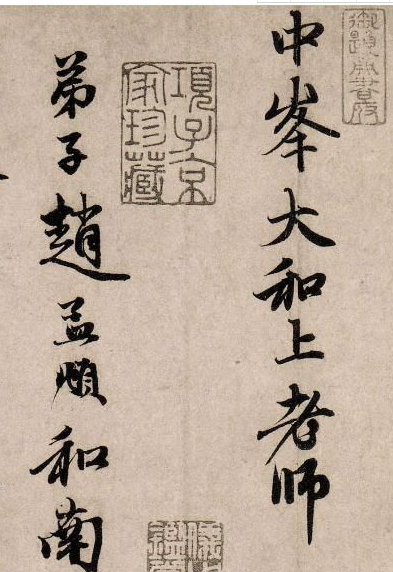 中峯大和上老師
項子京
家珍藏
弟子趙孟頫和南